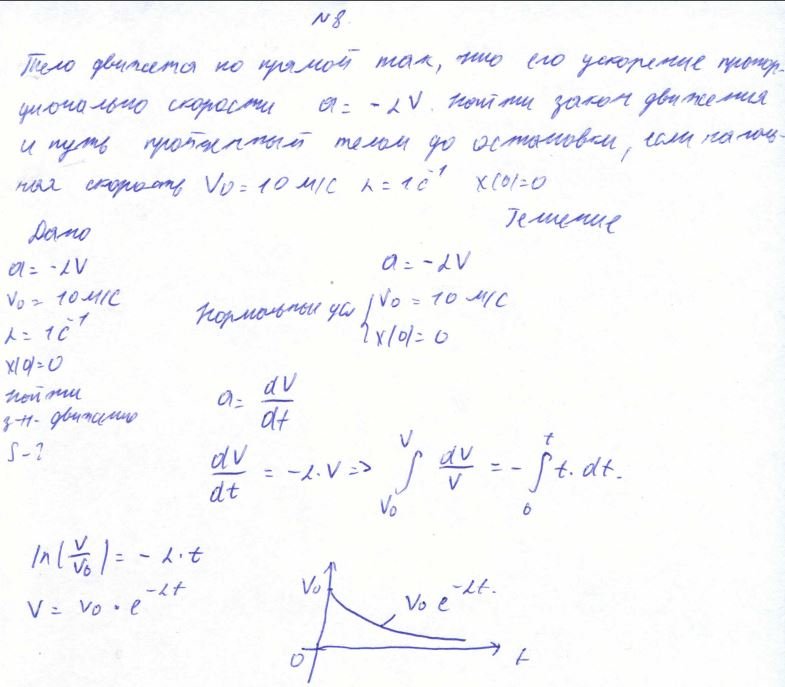 №8.
Тело движется по прямой так, что его ускорение пропор-
ционально скорости a = -αV. Найти закон движения
и путь пройденный телом до остановки, если началь-
ная скорость V₀ = 10 м/с α = 1 с⁻¹ x(0)=0
Решение
Дано
a = -αV
V₀ = 10 м/с
α = 1 с⁻¹
x(0)=0
Найти
з-н. движения
S - ?
a = -αV
Нормальные усл { V₀ = 10 м/с
x(0) = 0
a = dV/dt
dV/dt = -α·V => ∫_{V₀}^{V} dV/V = -∫_{0}^{t} t·dt.
ln(V/V₀) = -α·t
V = V₀ · e^{-αt}
V₀
V₀ e^{-αt}.
0
t